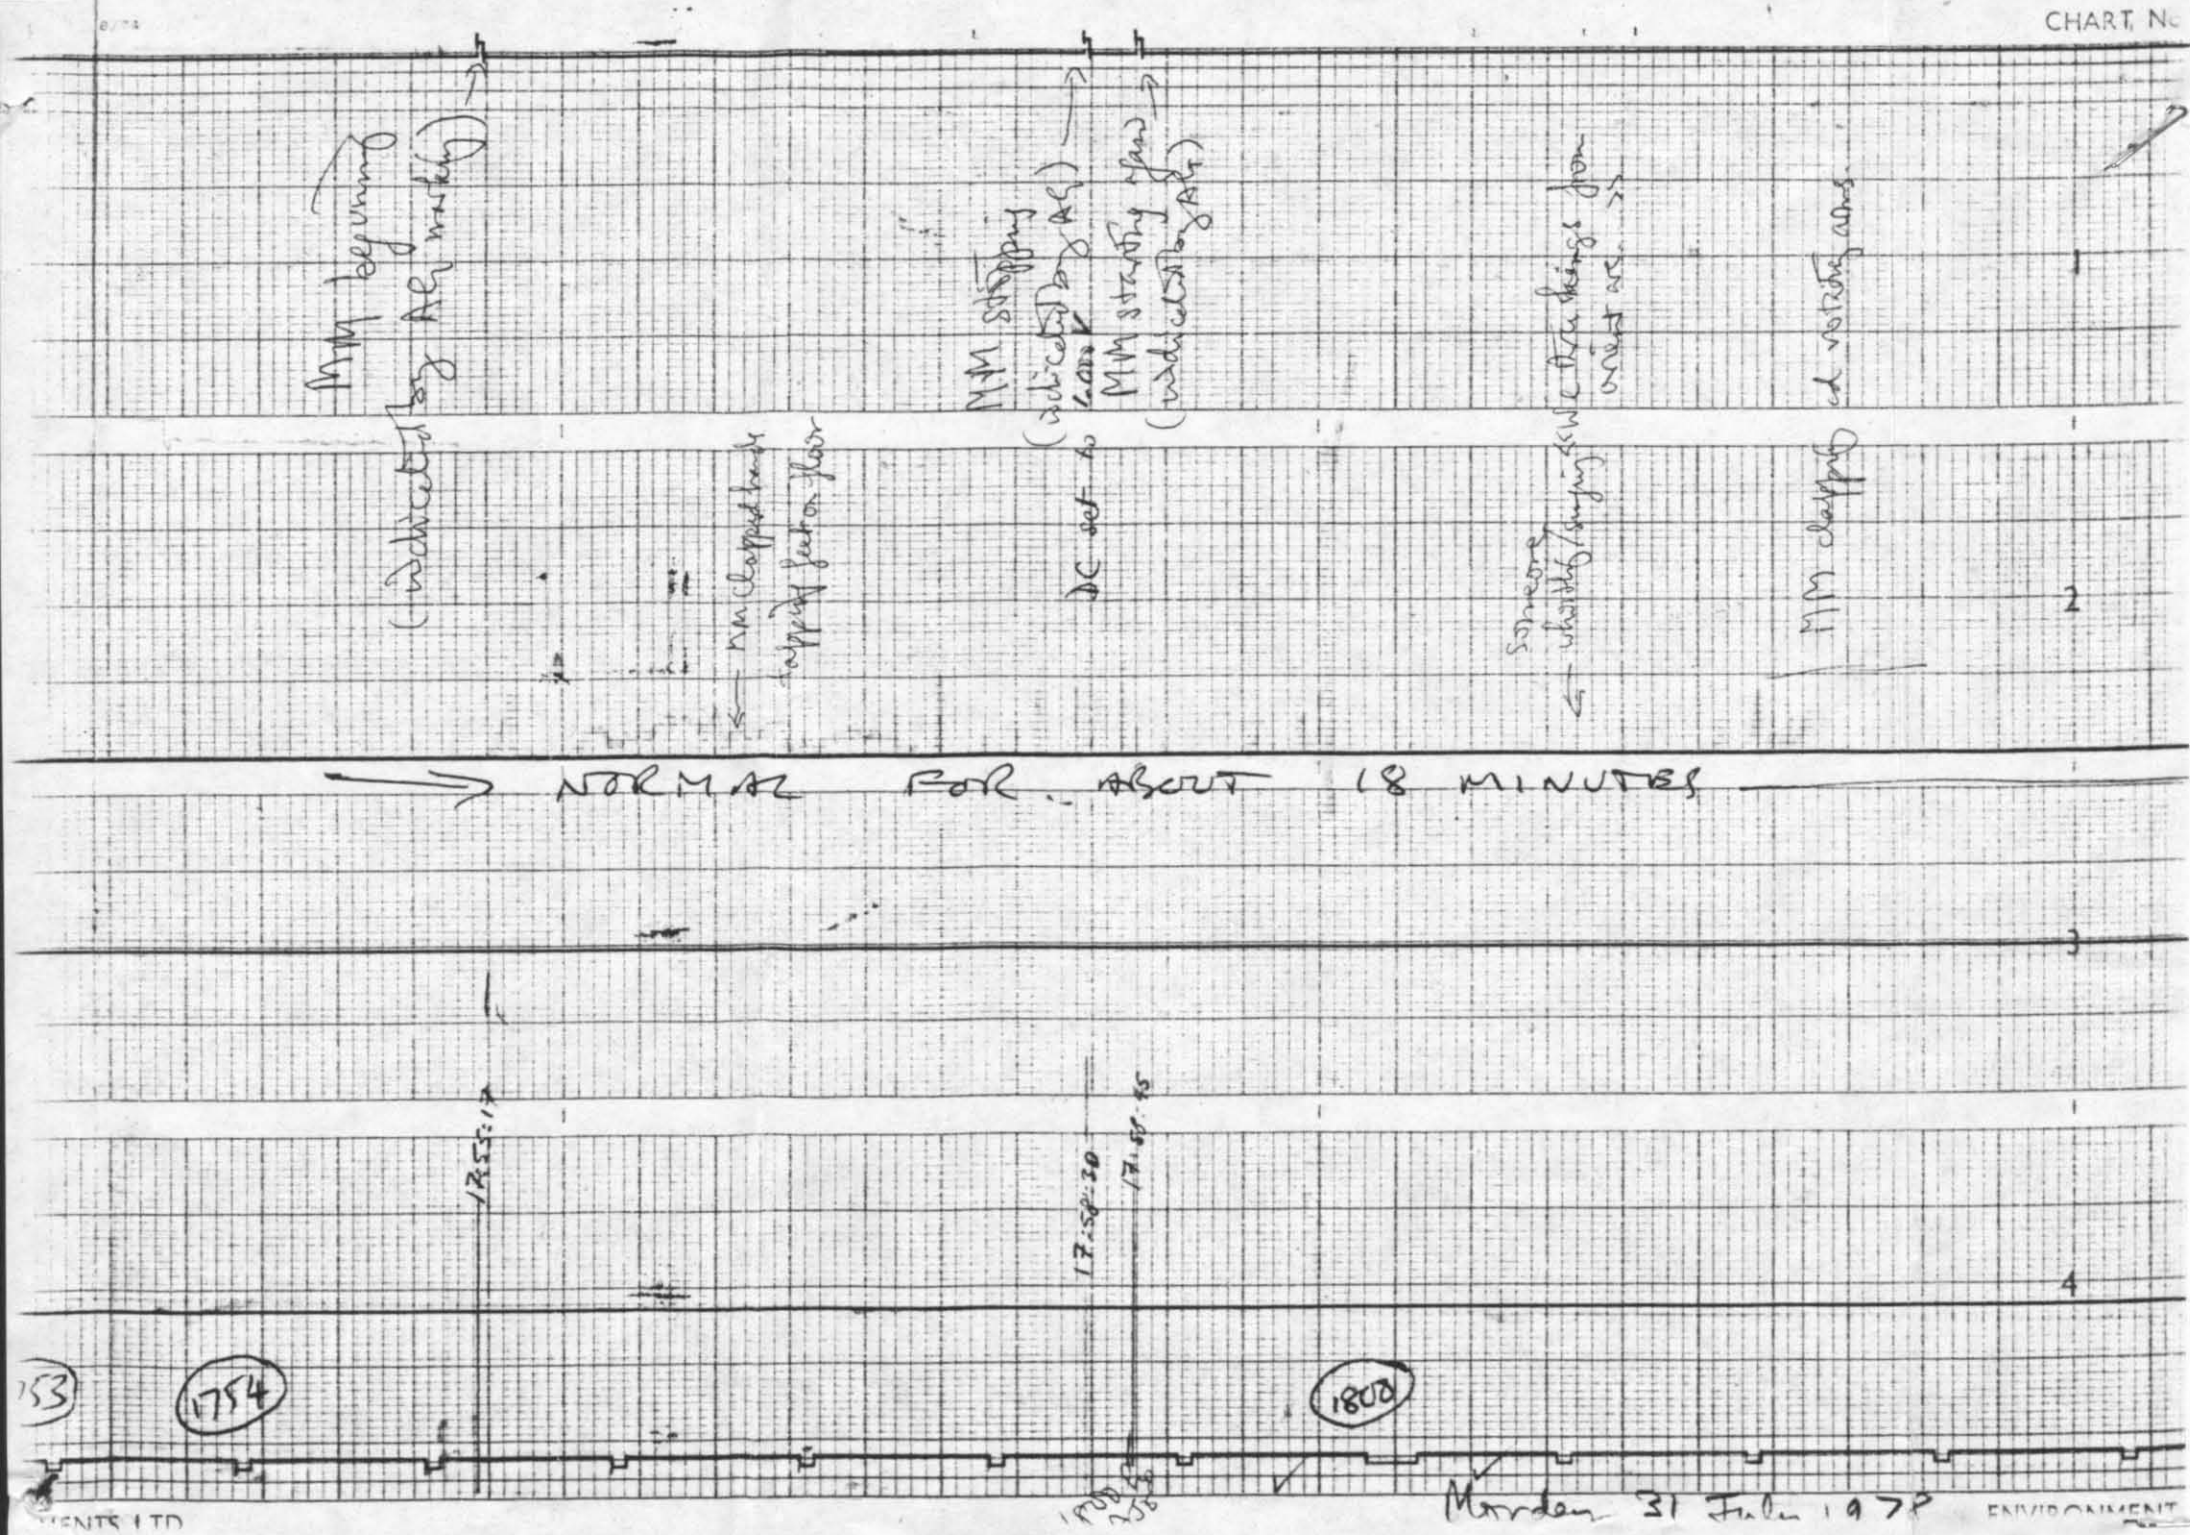 CHART
MM beginning
(indicated by AG marking) →
MM clapped hands
tapped feet on floor
MM stopping
(indicated by AG) →
DC set to
MM starting again →
(indicated by AG)
Someone
←
"We three kings from
orient are."
MM clapping and rotating arms.
1
2
→ NORMAL FOR ABOUT 18 MINUTES
3
17:55:17
17:58:30
17:58:45
4
153
1754
1800
31 July 1978
MENTS LTD
ENVIRONMENT